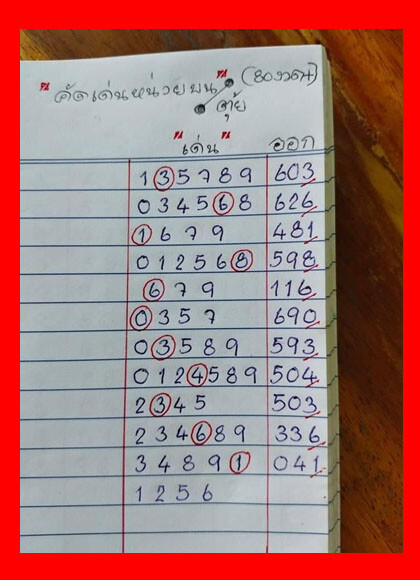 " คัดเด่นหน่วยบน " (80งวด)
"เด่น" ออก
1 3 5 7 8 9 603
0 3 4 5 6 8 626
1 6 7 9 481
0 1 2 5 6 8 598
6 7 9 116
0 3 5 7 690
0 3 5 8 9 593
0 1 2 4 5 8 9 504
2 3 4 5 503
2 3 4 6 8 9 336
3 4 8 9 1 041
1 2 5 6